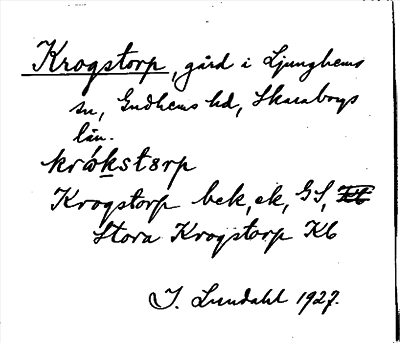 Krogstorp, gård i Ljunghems
sn, Gudhems hd, Skaraborgs
län.
krókstərp
Krogstorp bek, ek, GS,
Stora Krogstorp Kb
I. Lundahl 1927.